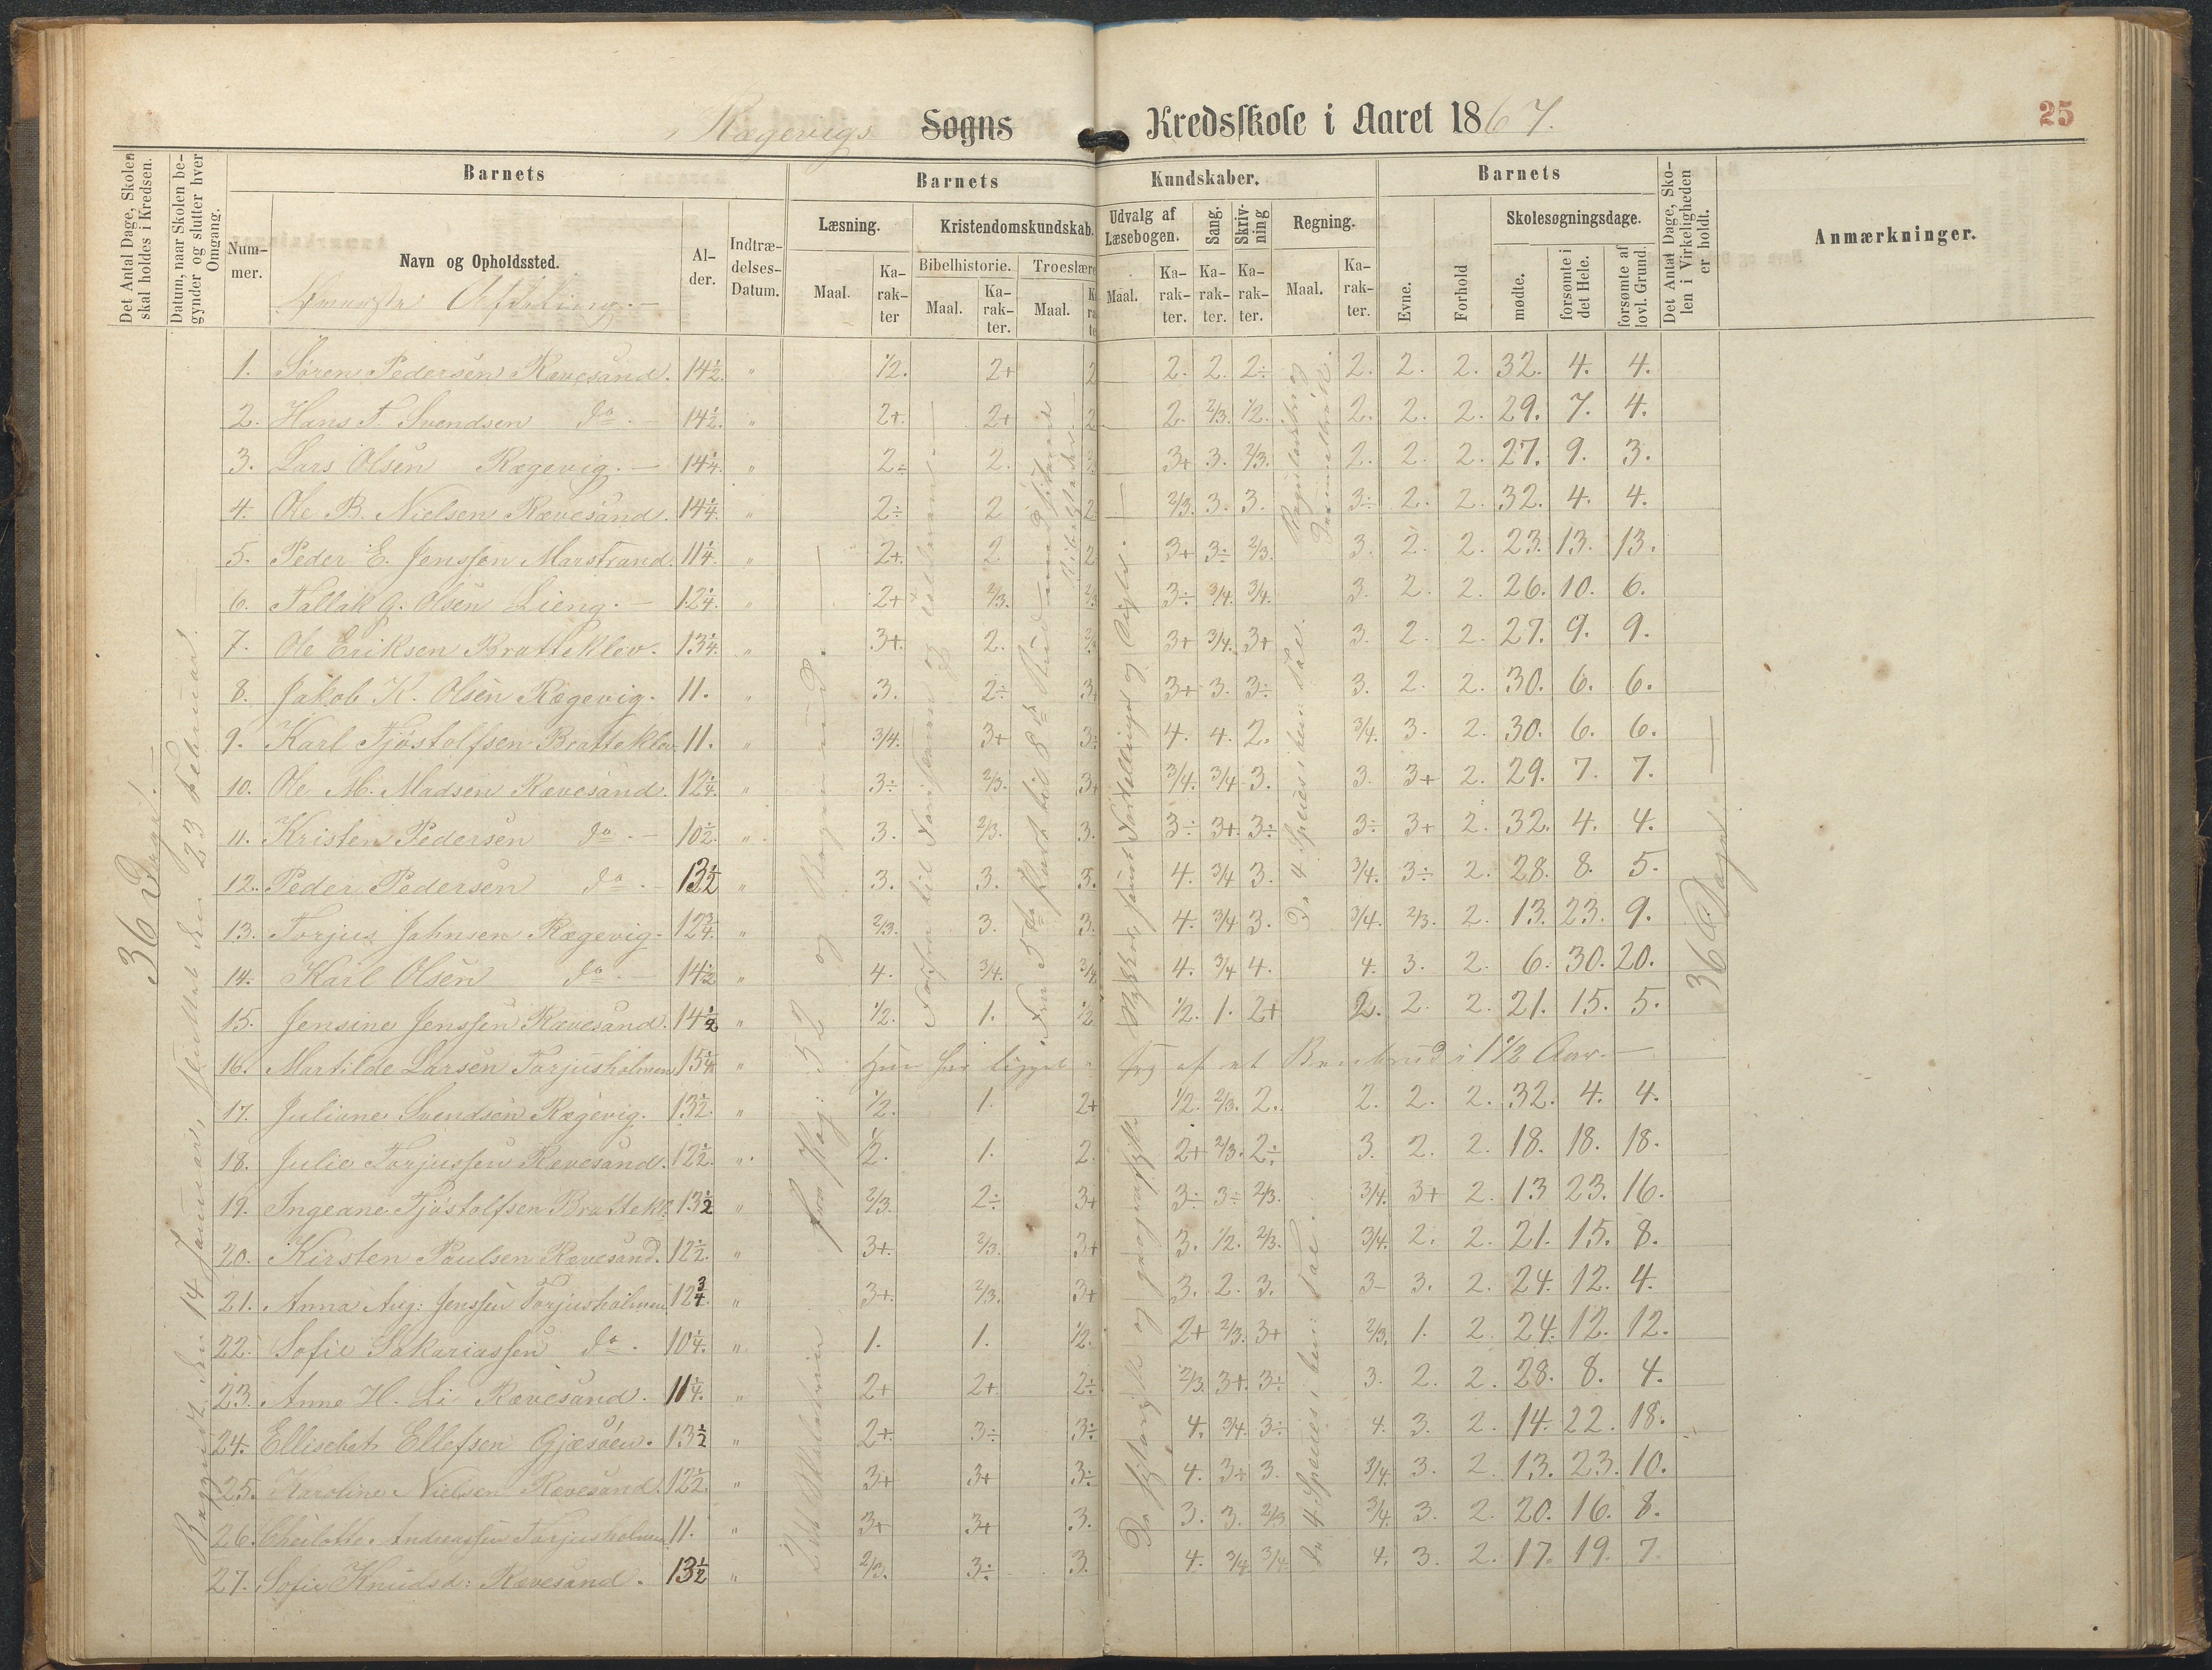 Rægevigs Sogns Kredsskole i Aaret 1867.
25
Det Antal Dage, Skolen skal holdes i Kredsen.
Datum, naar Skolen begynder og slutter hver Omgang.
Barnets
Barnets Kundskaber.
Barnets
Det Antal Dage, Skolen i Virkeligheden er holdt.
Anmærkninger.
Nummer.
Navn og Opholdssted.
Alder.
Indtrædelses-Datum.
Læsning.
Kristendomskundskab.
Udvalg af Læsebogen.
Sang.
Skrivning
Regning.
Evne.
Forhold
Skolesøgningsdage.
Bibelhistorie.
Troeslære
Maal.
Karakter
Maal.
Karakter.
Maal.
Maal.
Karakter.
Karakter.
Karakter.
Maal.
Karakter.
mødte.
forsømte i det Hele.
forsømte af lovl. Grund.
36 Dage.
36 Dage.
1. Søren Pedersen Rævesand. 14 1/2. " 1/2. 2+ 2 2. 2. 2÷ 2. 2. 2. 32. 4. 4.
2. Hans T. Svendsen do. 14 1/2. " 2+. 2+ 2 2. 2/3. 1/2. 2. 2. 2. 29. 7. 4.
3. Lars Olsen Rægevig. 14 1/4. " 2÷ 2. 3+ 3. 2/3. 2. 2. 2. 27. 9. 3.
4. Ole B. Nielsen Rævesand. 14 1/4. " 2÷ 2 2 2/3. 3. 3. 3÷ 2. 2. 32. 4. 4.
5. Peder E. Jenssen Marstrand. 11 1/4. " 2+. 2 2 3+ 3÷ 2/3. 3. 2. 2. 23. 13. 13.
6. Tallak G. Olsen Lieng. 12 1/4. " 2+ 2/3. 2/3 3÷ 3/4. 3/4. 3. 2. 2. 26. 10. 6.
7. Ole Eriksen Bratteklev. 13 1/4. " 3+. 2. 2/3 3+ 3/4. 3+ 3. 2. 2. 27. 9. 9.
8. Jakob K. Olsen Rægevig. 11. " 3. 2÷ 3+ 3+ 3. 3÷ 3. 2. 2. 30. 6. 6.
9. Karl Tjøstolfsen Bratteklev. 11. " 3/4. 3+ 3÷ 4. 4. 2. 3/4. 3. 2. 30. 6. 6.
10. Ole M. Madsen Rævesand. 12 1/4. " 3÷ 2/3. 3+ 3/4. 3/4 3. 3. 3+ 2. 29. 7. 7.
11. Kristen Pedersen do. 10 1/2. " 3. 2/3. 3. 3÷ 3+. 3÷ 3÷ 3+ 2. 32. 4. 4.
12. Peder Pedersen do. 13 1/2 " 3. 3. 3. 4. 3/4 3. 3/4. 3÷ 2. 28. 8. 5.
13. Torjus Jahnsen Rægevig. 12 3/4. " 2/3. 3. 3. 4. 3/4 3. 3/4. 2/3. 2. 13. 23. 9.
14. Karl Olsen do. 14 1/2 " 4. 3/4. 3/4 4. 3/4 4. 4. 3. 2. 6. 30. 20.
15. Jensine Jenssen Rævesand. 14 1/2 " 1/2. 1. 1/2 1/2. 1. 2+ 2. 2. 2. 21. 15. 5.
16. Martilde Larsen Torjusholmen 15 1/4 " Hun har ligget syg af et Benbrud i 1 1/2 Aar.
17. Juliane Svendsen Rægevig. 13 1/2. " 1/2. 1. 2+ 1/2. 2/3. 2. 2. 2. 2. 32. 4. 4.
18. Julie Torjussen Rævesand. 12 1/2. " 1/2. 1. 2. 2+ 2/3. 2÷ 3. 2. 2. 18. 18. 18.
19. Ingeane Tjøstolfsen Brattekl. 13 1/2 " 2/3. 2÷ 3+ 3÷ 3÷ 2/3. 3/4. 3+ 2. 13 23. 16.
20. Kirsten Paulsen Rævesand. 12 1/2. " 3+. 2/3. 3+ 3. 1/2. 2/3. 3/4. 2. 2. 21. 15. 8.
21. Anna Aug: Jenssen Torjusholmen 12 3/4. " 3+. 2/3. 3+ 3. 2. 3. 3- 3. 2. 24. 12. 4.
22. Sofie Sakariassen do. 10 1/4. " 1. 1. 1/2. 2+ 2/3. 3+ 2/3. 1. 2. 24. 12. 12.
23. Anne H. Li Rævesand. 11 1/4. " 2+ 2+. 2÷ 2/3. 3+. 3÷ 3. 2. 2. 28. 8. 4.
24. Ellisebet Ellefsen Gjæsøen. 13 1/2 " 2+. 3÷ 3÷ 4. 3/4. 3÷ 4. 3. 2. 14. 22. 18.
25. Karoline Nielsen Rævesand. 12 1/2. " 3+ 3+ 3÷ 4. 3+ 3. 3/4. 3. 2. 13. 23. 10.
26. Charlotte Andreassen Torjusholmen 11. " 3+ 3+ 3. 3. 3. 2/3 3/4. 3. 2. 20. 16. 8.
27. Sofie Knudsd: Rævesand. 13 1/2 " 2/3. 3÷ 3. 4. 3/4 3/4. 4. 3. 2. 17. 19. 7.
Begyndt den 14 Januar, sluttet den 23 Februar.